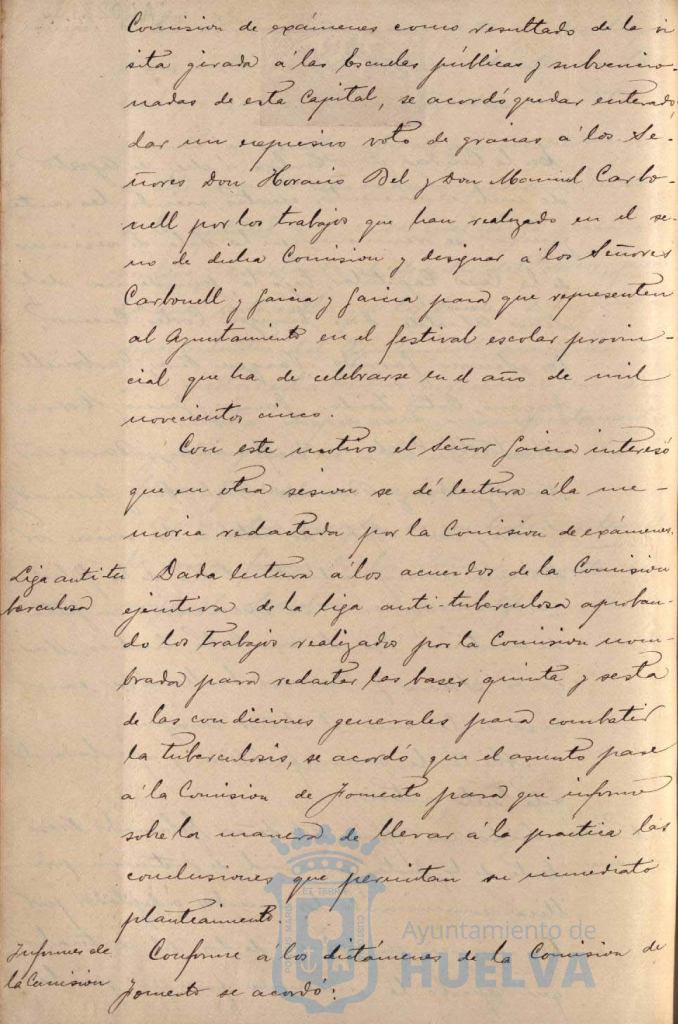 Comision de exámenes como resultado de la vi
sita girada á las Escuelas públicas y subvencio-
nadas de esta Capital, se acordó quedar enterado
dar un expresivo voto de gracias á los Se-
ñores Don Horacio Bel y Don Manuel Carbo-
nell por los trabajos que han realizado en el se-
no de dicha Comision y designar á los Señores
Carbonell y Garcia y Garcia para que representen
al Ayuntamiento en el festival escolar provin-
cial que ha de celebrarse en el año de mil
novecientos cinco.
Con este motivo el Señor Garcia interesó
que en otra sesion se dé lectura á la me-
moria redactada por la Comision de exámenes.
Liga anti tu
berculosa
Dada lectura á los acuerdos de la Comision
ejecutiva de la liga anti-tuberculosa aproban-
do los trabajos realizados por la Comision nom-
brada para redactar las bases quinta y sesta
de las condiciones generales para combatir
la tuberculosis, se acordó que el asunto pase
á la Comision de Fomento para que informe
sobre la manera de llevar á la practica las
conclusiones que permitan su inmediato
planteamiento.
Informes de
la Comision
Conforme á los dictámenes de la Comision de
Fomento se acordó:
Ayuntamiento de
HUELVA